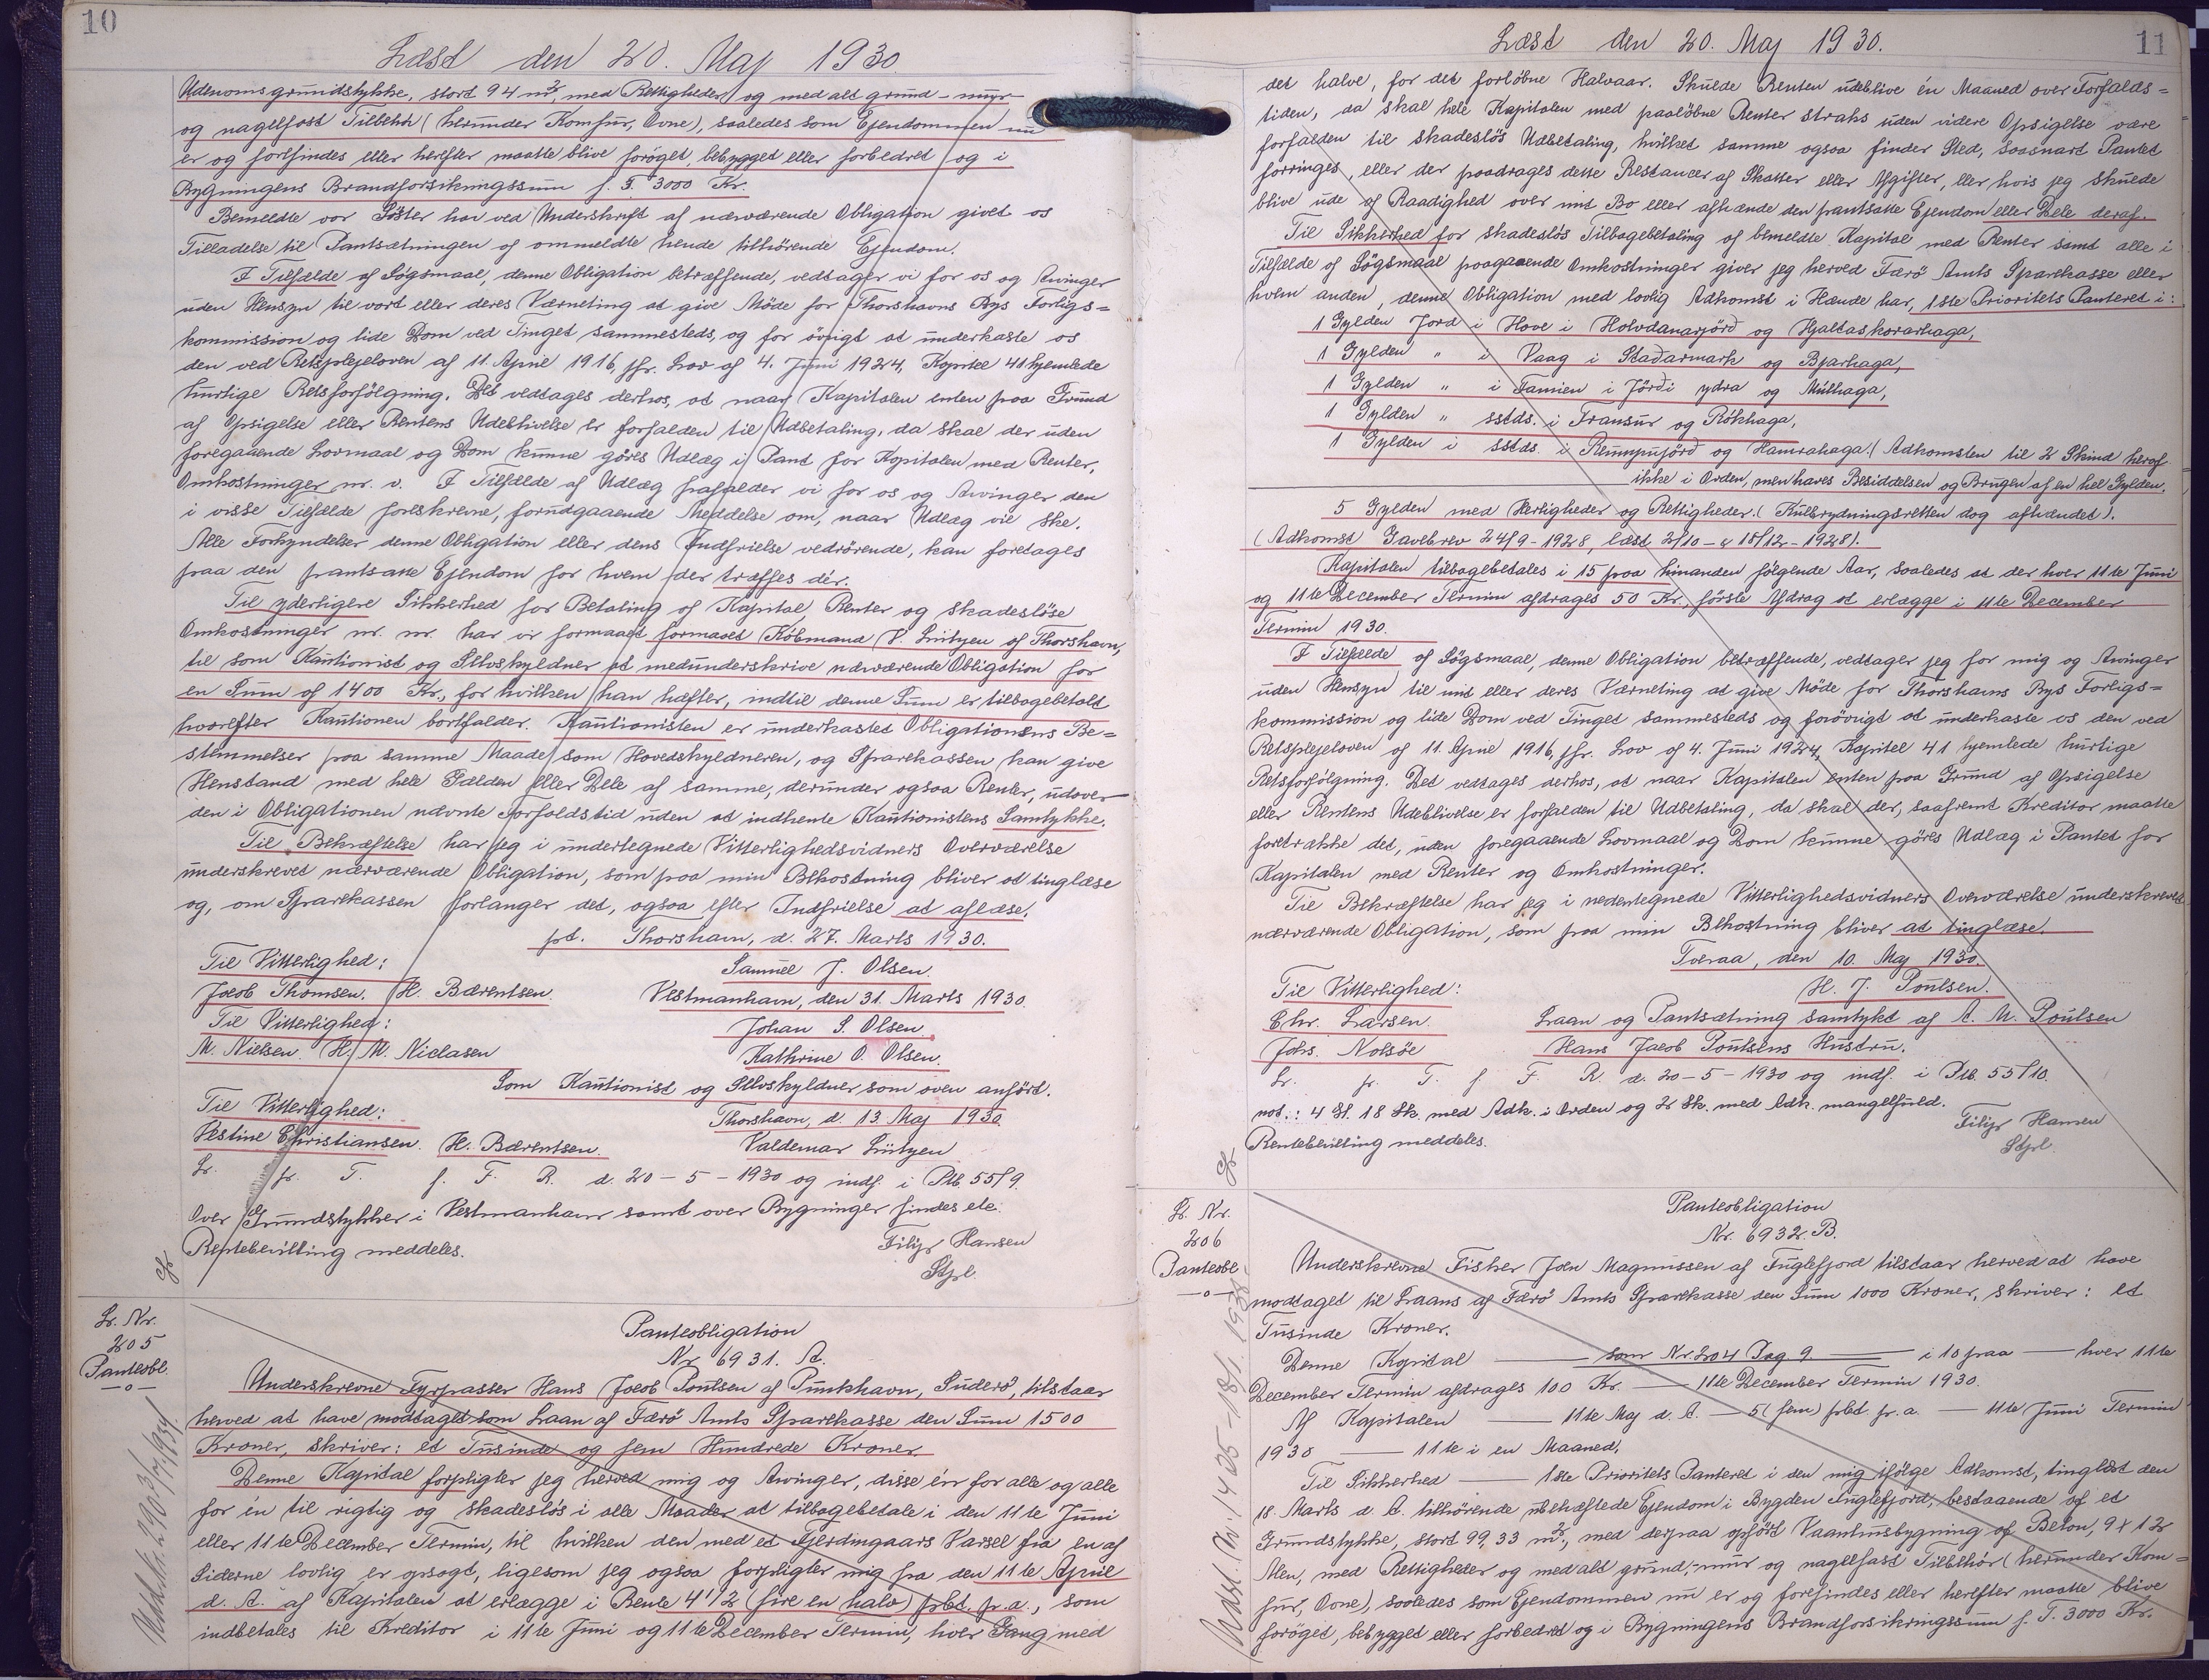 10
Læst den 20. Maj 1930
Udenomsgrundstykke, stort 94 m², med Rettigheder og med alt grund- mur-
og nagelfast Tilbehör (herunder Komfur, Ovne), saaledes som Ejendommen nu
er og forefindes eller herefter maatte blive foröget, bebygget eller forbedret og i
Bygningens Brandforsikringssum f. T. 3000 Kr.
Bemeldte vor Söster har ved Underskrift af nærværende Obligation givet os
Tilladelse til Pantsætningen af ommeldte hende tilhörende Ejendom.
I Tilfælde af Sögsmaal, denne Obligation betræffende, vedtager vi for os og Arvinger
uden Hensyn til vort eller deres Værneting at give Möde for Thorshavns Bys Forligs=
kommission og lide Dom ved Tinget sammesteds, og for övrigt at underkaste os
den ved Retsplejeloven af 11. April 1916, jfr. Lov af 4. Juni 1924, Kapitel 41 hjemlede
hurtige Retsforfölgning. Det vedtages derhos, at naar Kapitalen enten paa Grund
af Opsigelse eller Rentens Udeblivelse er forfalden til Udbetaling, da skal der uden
foregaaende Lovmaal og Dom kunne göres Udlæg i Pant for Kapitalen med Renter,
Omkostninger m. v. I Tilfælde af Udlæg frafalder vi for os og Arvinger den
i visse Tilfælde foreskrevne, forudgaaende Meddelse om, naar Udlæg vil ske.
Alle Forkyndelser denne Obligation eller dens Indfrielse vedrörende, kan foretages
paa den pantsatte Ejendom for hvem der træffes dér.
Til yderligere Sikkerhed for Betaling af Kapital, Renter og skadeslöse
Omkostninger m. m. har vi formaaet formaaet Köbmand V. Lützen af Thorshavn,
til som Kautionist og Selvskyldner at medunderskrive nærværende Obligation for
en Sum af 1400 Kr., for hvilken han hæfter, indtil denne Sum er tilbagebetalt
hvorefter Kautionen bortfalder. Kautionisten er underkastet Obligationens Be=
stemmelser paa samme Maade som Hovedskyldneren, og Sparekassen kan give
Henstand med hele Gælden eller Dele af samme, derunder ogsaa Renter, udover
den i Obligationen nævnte Forfaldstid uden at indhente Kautionistens Samtykke.
Til Bekræftelse har jeg i undertegnede Vitterlighedsvidners Overværelse
underskrevet nærværende Obligation, som paa min Bekostning bliver at tinglæse
og, om Sparekassen forlanger det, ogsaa efter Indfrielse at aflæse.
pt. Thorshavn, d. 27. Marts 1930.
Til Vitterlighed: Samuel J. Olsen.
Jacob Thomsen. H. Bærentsen. Vestmanhavn, den 31. Marts 1930.
Til Vitterlighed: Johan S. Olsen.
M. Nielsen. H. M. Niclasen Kathrine O. Olsen.
Som Kautionist og Selvskyldner som oven anfört.
Til Vitterlighed: Thorshavn, d. 13. Maj 1930.
Vestine Christiansen. H. Bærentsen. Valdemar Lützen
Lr. fr. T. f. F. R. d. 20-5-1930 og indf. i Ptb. 55/9.
Over Grundstykker i Vestmanhavn samt over Bygninger findes ele.
Rentebevilling meddeles. Filip Hansen
Stfpl.
Lr. Nr.
205
Panteobl.
—o—
Panteobligation
Nr. 6931. A.
Underskrevne Fyrpasser Hans Jacob Poulsen af Punkhavn, Suderö, tilstaar
herved at have modtaget som Laan af Færö Amts Sparekasse den Sum 1500
Kroner, skriver: et Tusinde og fem Hundrede Kroner.
Denne Kapital forpligter jeg herved mig og Arvinger, disse én for alle og alle
for én til rigtig og skadeslös i alle Maader at tilbagebetale i den 11te Juni
eller 11te December Termin, til hvilken den med et Fjerdingaars Varsel fra en af
Siderne lovlig er opsagt, ligesom jeg ogsaa forpligter mig fra den 11te April
d. A. af Kapitalen at erlægge i Rente 4 1/2 (fire en halv) pbt. p. a., som
indbetales til Kreditor i 11te Juni og 11te December Termin, hver Gang med
Læst den 20. Maj 1930.
11
det halve, for det forlöbne Halvaar. Skulde Renten udeblive én Maaned over Forfalds=
tiden, da skal hele Kapitalen med paalöbne Renter straks uden videre Opsigelse være
forfalden til skadeslös Udbetaling, hvilket samme ogsaa finder Sted, saasnart Pantet
forringes, eller der paadrages dette Restancer af Skatter eller Afgifter, eller hvis jeg skulde
blive ude af Raadighed over mit Bo eller afhænde den pantsatte Ejendom eller Dele deraf.
Til Sikkerhed for skadeslös Tilbagebetaling af bemeldte Kapital med Renter samt alle i
Tilfælde af Sögsmaal paagaaende Omkostninger giver jeg herved Færö Amts Sparekasse eller
hvem anden, denne Obligation med lovlig Adkomst i Hænde har, 1ste Prioritets Panteret i:
1 Gylden Jord i Hove i Holvdanarjörð og Hjaltaskorarhaga,
1 Gylden " i Vaag i Staðarmark og Bjarhaga,
1 Gylden " i Famien i Jörði ydra og Múlhaga,
1 Gylden " sstds. i Fransur og Rókhaga,
1 Gylden i sstds. i Rumpujörð og Hamrahaga. (Adkomsten til 2 Skind heraf
ikke i Orden, men haves Besiddelsen og Brugen af en hel Gylden.
5 Gylden med Herligheder og Rettigheder. (Kulbrydningsretten dog afhændet).
(Adkomst Gavebrev 24/9-1928, læst 2/10- & 18/12-1928).
Kapitalen tilbagebetales i 15 paa hinanden fölgende Aar, saaledes at der hver 11te Juni
og 11te December Termin afdrages 50 Kr., förste Afdrag at erlægge i 11te December
Termin 1930.
I Tilfælde af Sögsmaal, denne Obligation betræffende, vedtager jeg for mig og Arvinger
uden Hensyn til mit eller deres Værneting at give Möde for Thorshavns Bys Forligs=
kommission og lide Dom ved Tinget sammesteds og forövrigt at underkaste os den ved
Retsplejeloven af 11. April 1916, jfr. Lov af 4. Juni 1924, Kapitel 41 hjemlede hurtige
Retsforfölgning. Det vedtages derhos, at naar Kapitalen enten paa Grund af Opsigelse
eller Rentens Udeblivelse er forfalden til Udbetaling, da skal der, saafremt Kreditor maatte
foretrække det, uden foregaaende Lovmaal og Dom kunne göres Udlæg i Pantet for
Kapitalen med Renter og Omkostninger.
Til Bekræftelse har jeg i nedentegnede Vitterlighedsvidners Overværelse underskrevet
nærværende Obligation, som paa min Bekostning bliver at tinglæse.
Tveraa, den 10. Maj 1930.
Til Vitterlighed: H. J. Poulsen.
Chr. Larsen. Laan og Pantsætning samtykt af A. M. Poulsen
Johs. Nolsöe Hans Jacob Poulsens Hustru.
Lr. fr. T. f. F. R. d. 20-5-1930 og indf. i Ptb. 55/10.
not.: 4 Gl. 18 Sk. med Adk. i Orden og 2 Sk. med Adk. mangelfuld.
Rentebevilling meddeles. Filip Hansen
Stfpl.
Lr. Nr.
206
Panteobl
—o—
Panteobligation
Nr. 6932. B.
Underskrevne Fisker Joen Magnussen af Fuglefjord tilstaar herved at have
modtaget til Laans af Færö Amts Sparekasse den Sum 1000 Kroner, skriver: et
Tusinde Kroner.
Denne Kapital — som Nr. 204 Pag 9. — i 10 paa — hver 11te
December Termin afdrages 100 Kr. — 11te December Termin 1930.
Af Kapitalen — 11te Maj d. A. — 5 (fem) pbt. p. a. — 11te Juni Termin
1930 — 11te i en Maaned.
Til Sikkerhed — 1ste Prioritets Panteret i den mig ifölge Adkomst, tinglæst den
18. Marts d. A. tilhörende ubehæftede Ejendom i Bygden Fuglefjord, bestaaende af et
Grundstykke, stort 99,33 m²., med derpaa opfört Vaaningsbygning af Beton, 9 x 12
Alen, med Rettigheder og med alt grund,- mur og nagelfast Tilbehör (herunder Kom=
fur, Ovne), saaledes som Ejendommen nu er og forefindes eller herefter maatte blive
foröget, bebygget eller forbedret og i Bygningens Brandforsikringssum f. T. 3000 Kr.